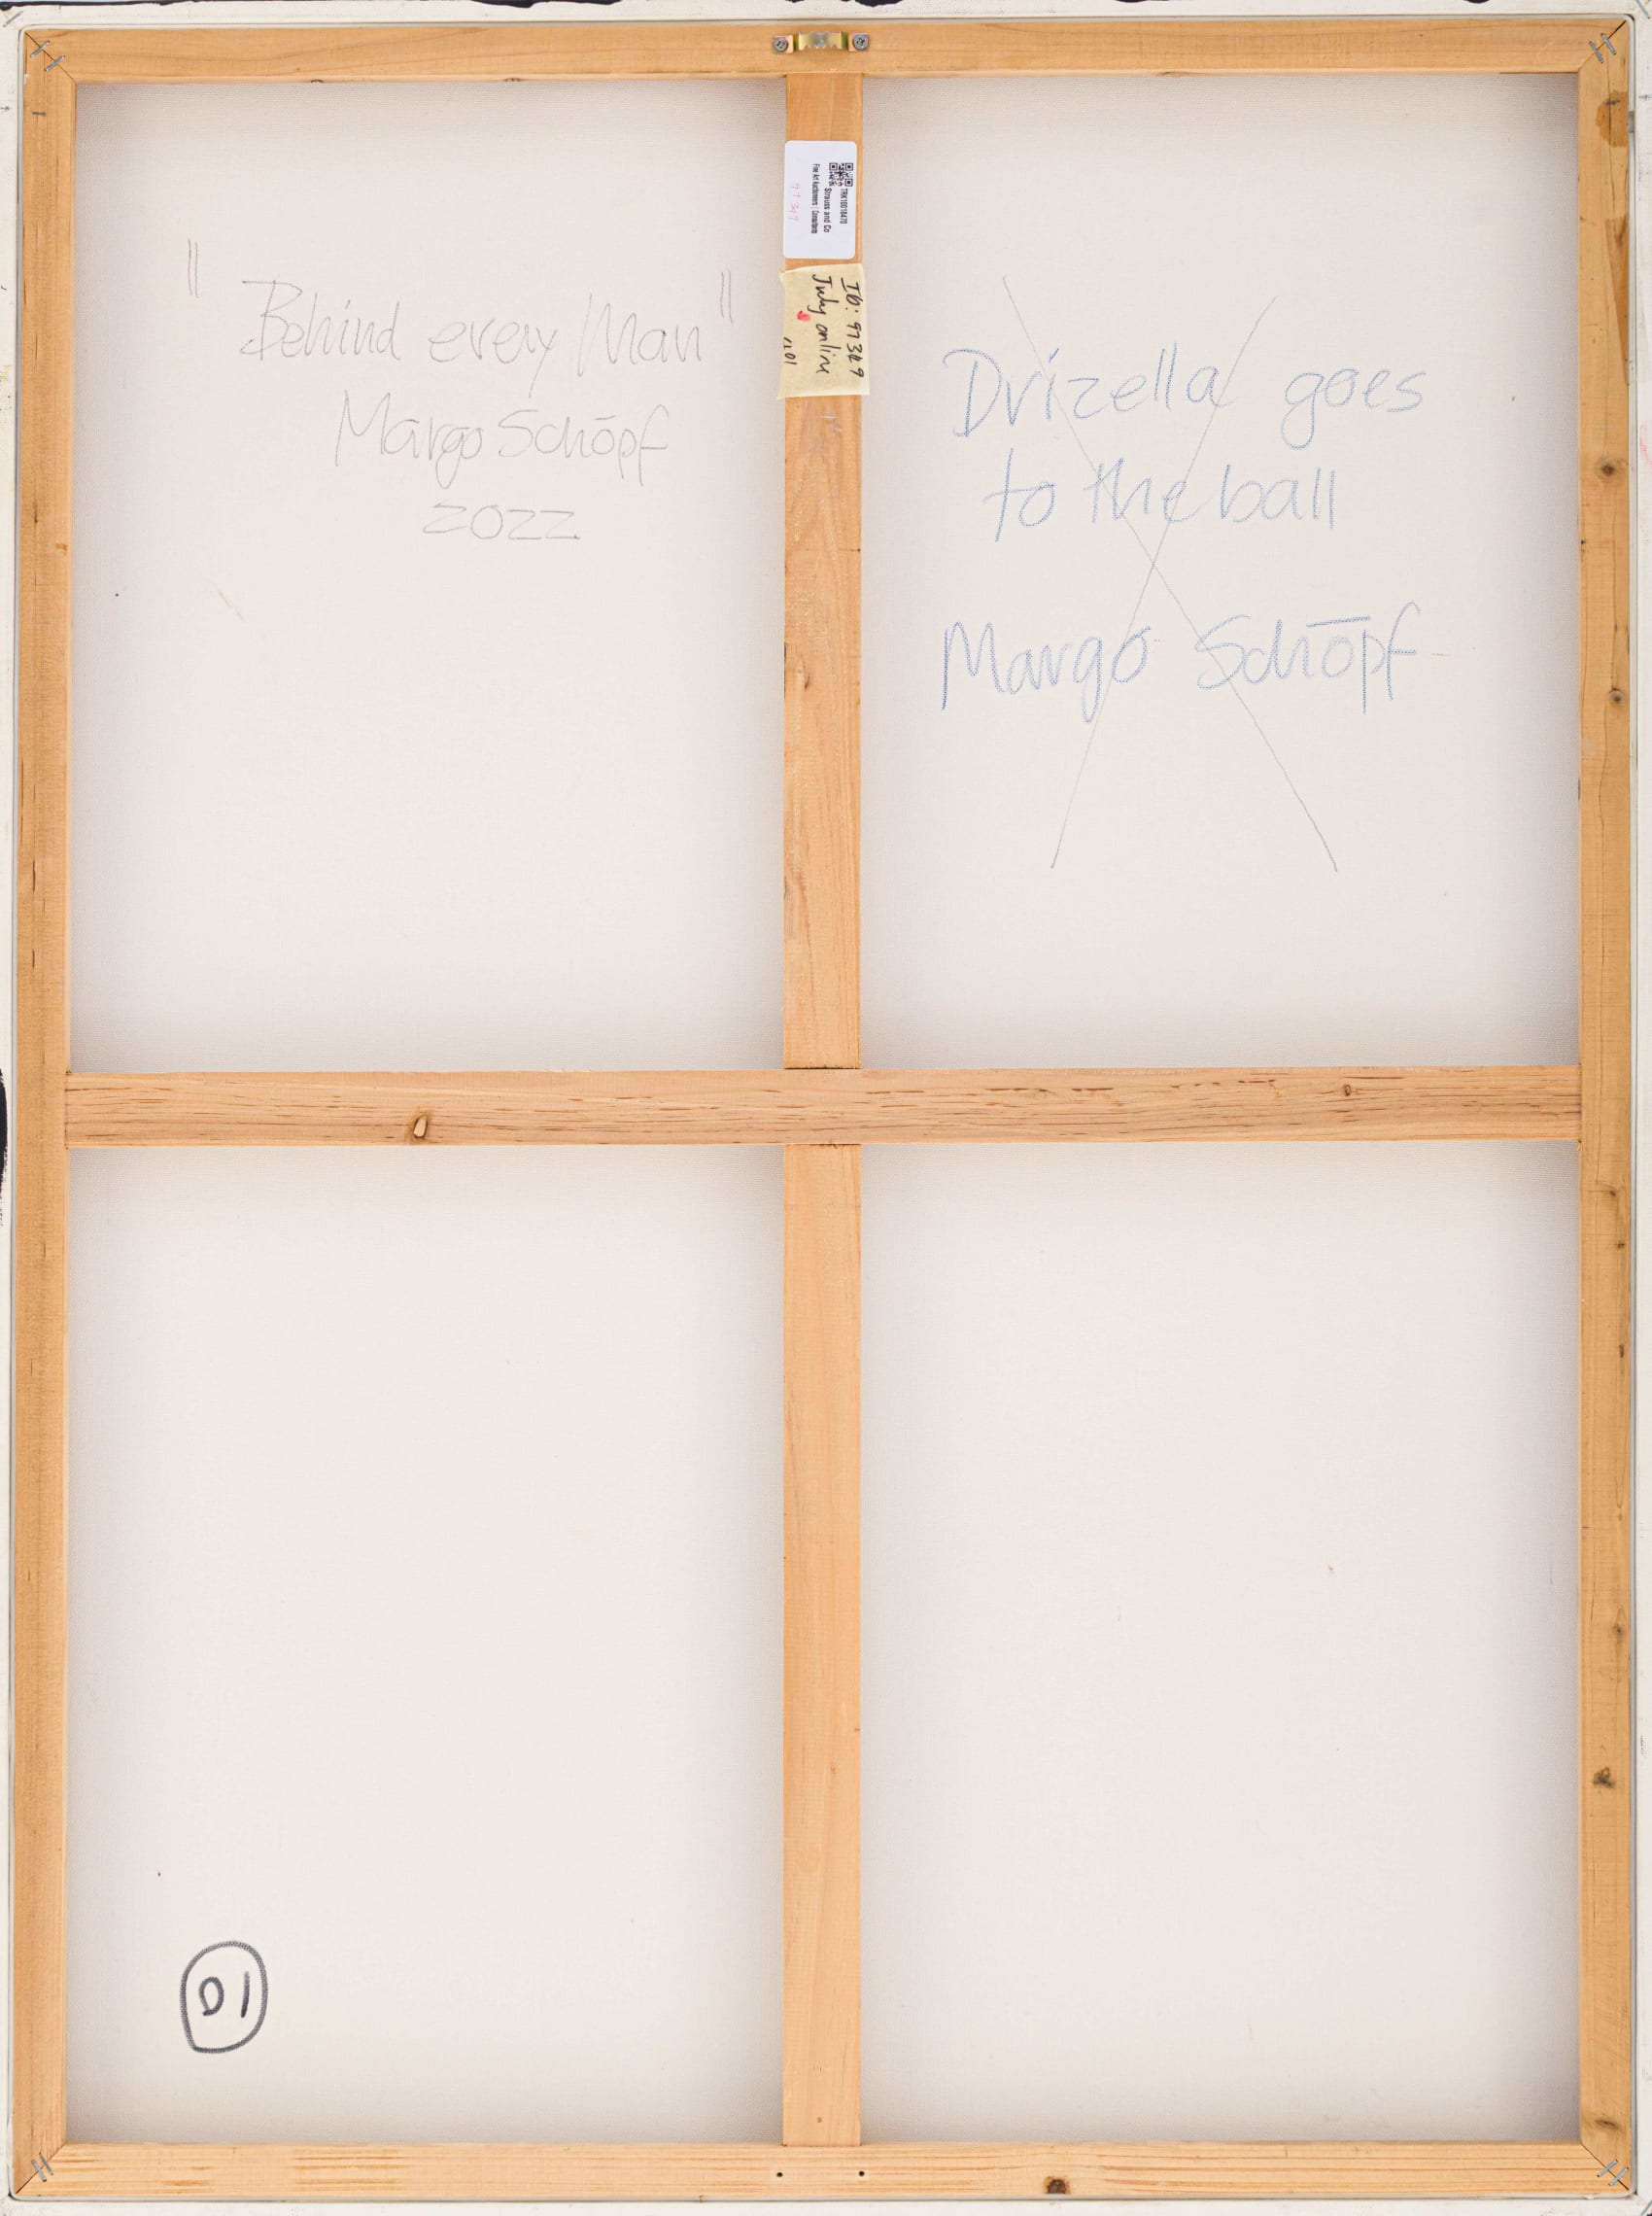 " Behind every Man "
Margo Schöpf
2022
TRK10016470
Strauss and Co
Fine Art Auctioneers | Consultants
ID: 97369
July online
Drizella goes
to the ball
Margo Schöpf
01